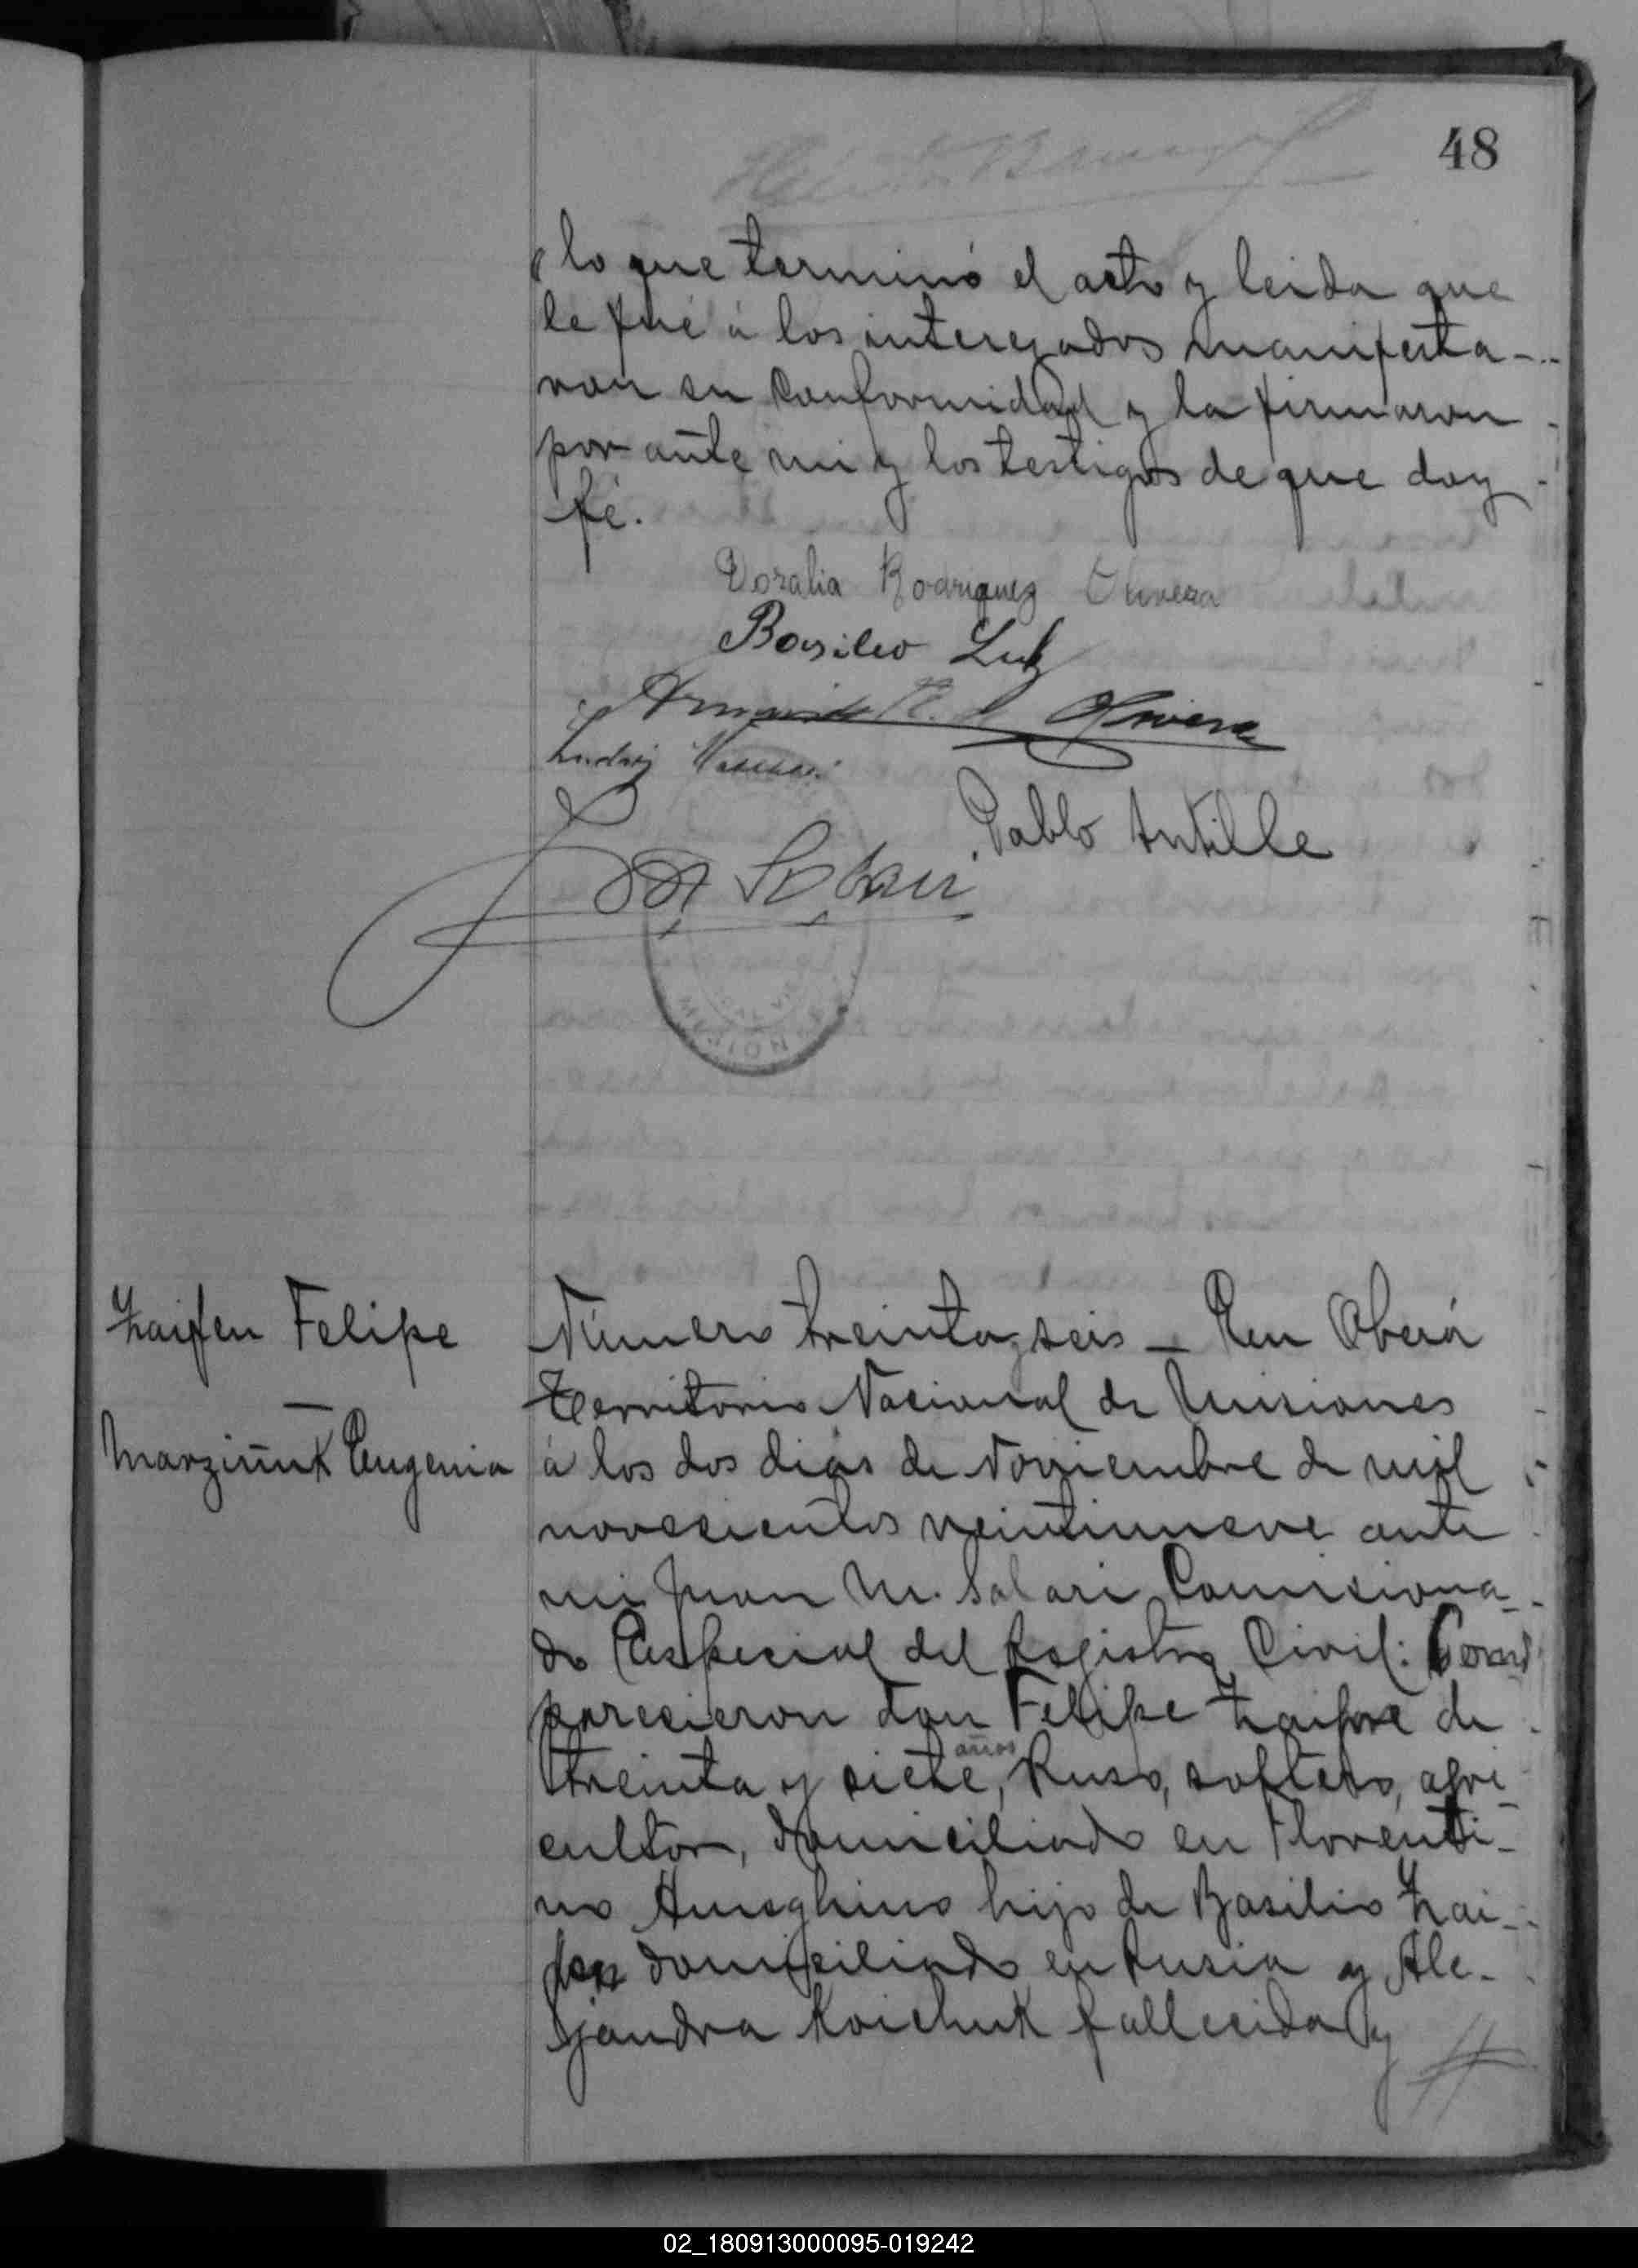 48
lo que terminó el acto y leida que
le fué á los interezados manifesta-
ron su conformidad y la firmaron
por ante mi y los testigos de que doy
fé.
Doralia Rodriguez Olivera
Basileo Luk
Armando R. de Olivera
Pablo Antille
Zaifen Felipe
Marziñuk Eugenia
Número treinta y seis – En Oberá
Territorio Nacional de Misiones
á los dos dias de Noviembre de mil
novecientos veintinueve ante
mi Juan M. Salari Comisiona-
do Especial del Registro Civil: Com
parecieron don Felipe Zaifen de
treinta y siete años, Ruso, soltero, agri
cultor, domiciliado en Florenti-
no Ameghino hijo de Basilio Zai-
fen domiciliado en Rusia y Ale-
jandra Koichuk fallecida y
02_180913000095-019242